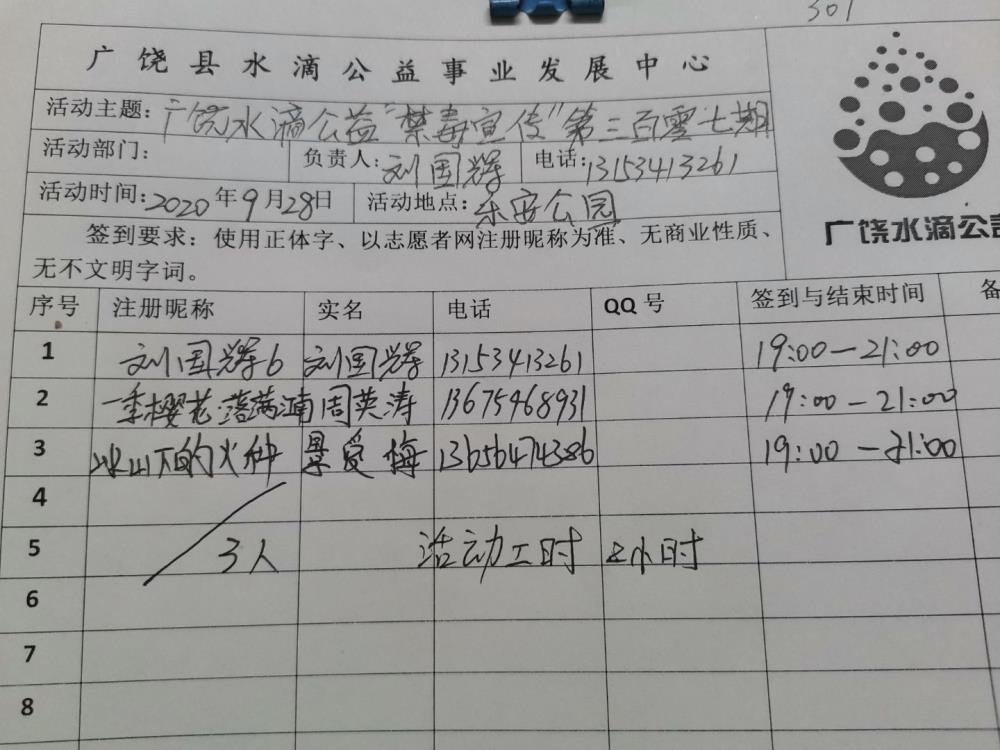 301
广饶县水滴公益事业发展中心
活动主题：广饶水滴公益“禁毒宣传”第三百零七期
活动部门： 负责人：刘国辉 电话：13153413261
活动时间：2020年9月28日 活动地点：乐安公园
签到要求：使用正体字、以志愿者网注册昵称为准、无商业性质、
无不文明字词。
广饶水滴公司
序号 注册昵称 实名 电话 QQ号 签到与结束时间 备
1 刘国辉6 刘国辉 13153413261 19:00—21:00
2 一季樱花落满湳 周英涛 13675468931 19:00—21:00
3 冰山下的火种 爱梅 13656474386 19:00—21:00
4
5 3人 活动工时 2小时
6
7
8